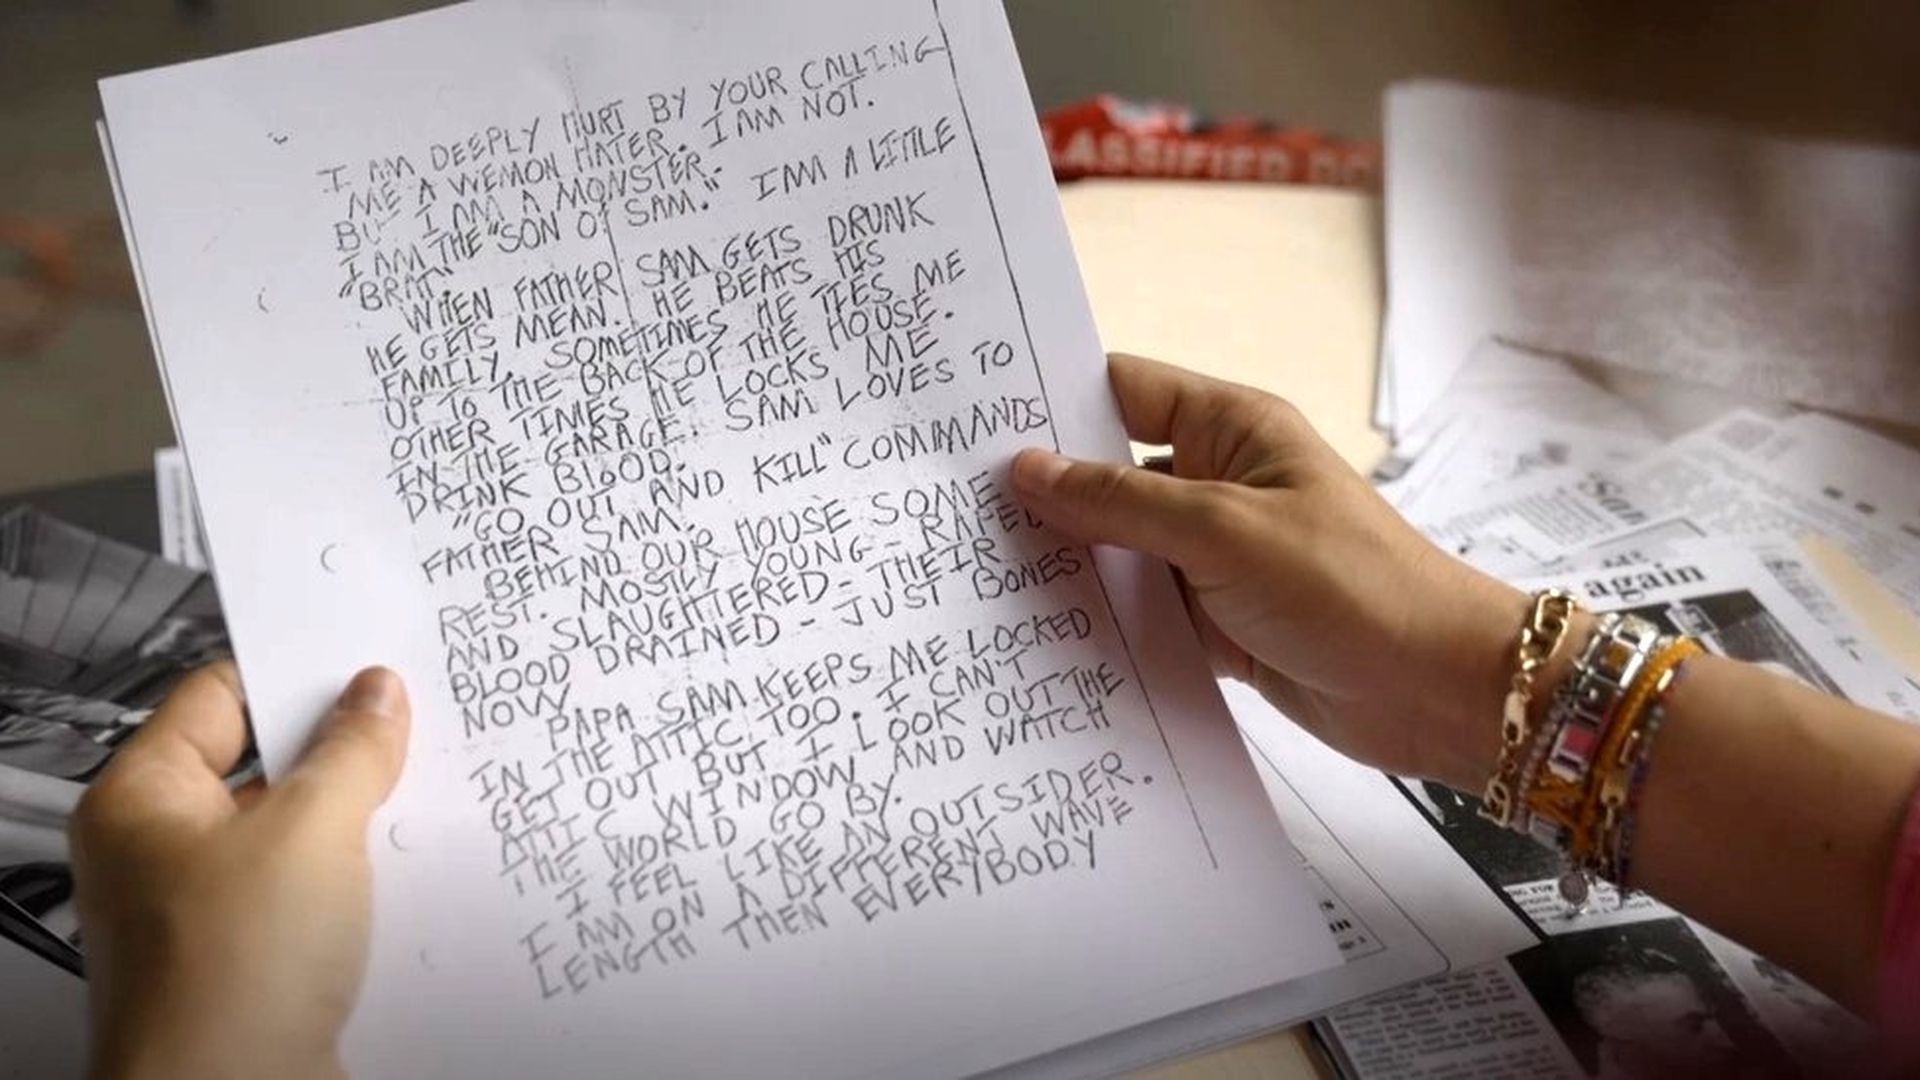 I AM DEEPLY HURT BY YOUR CALLING
ME A WEMON HATER. I AM NOT.
BUT I AM A MONSTER.
I AM THE "SON OF SAM." I AM A LITTLE
"BRAT".
WHEN FATHER SAM GETS DRUNK
HE GETS MEAN. HE BEATS HIS
FAMILY. SOMETIMES HE TIES ME
UP TO THE BACK OF THE HOUSE.
OTHER TIMES HE LOCKS ME
IN THE GARAGE. SAM LOVES TO
DRINK BLOOD.
"GO OUT AND KILL" COMMANDS
FATHER SAM.
BEHIND OUR HOUSE SOME
REST. MOSTLY YOUNG - RAPED
AND SLAUGHTERED - THEIR
BLOOD DRAINED - JUST BONES
NOW
PAPA SAM KEEPS ME LOCKED
IN THE ATTIC TOO. I CAN'T
GET OUT BUT I LOOK OUT THE
ATTIC WINDOW AND WATCH
THE WORLD GO BY.
I FEEL LIKE AN OUTSIDER.
I AM ON A DIFFERENT WAVE
LENGTH THEN EVERYBODY
LASSIFIED
again